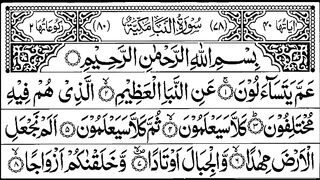 اٰیَاتُهَا ۴۰ (۷۸) سُوْرَةُ النَّبَاِ مَكِّيَّةٌ (۸۰) رُكُوْعَاتُهَا ۲
بِسْمِ اللهِ الرَّحْمٰنِ الرَّحِيْمِ
عَمَّ يَتَسَآءَلُوْنَ ۝۱ عَنِ النَّبَاِ الْعَظِيْمِ ۝۲ الَّذِيْ هُمْ فِيْهِ
مُخْتَلِفُوْنَ ۝۳ كَلَّا سَيَعْلَمُوْنَ ۝۴ ثُمَّ كَلَّا سَيَعْلَمُوْنَ ۝۵ اَلَمْ نَجْعَلِ
الْاَرْضَ مِهٰدًا ۝۶ وَّالْجِبَالَ اَوْتَادًا ۝۷ وَّخَلَقْنٰكُمْ اَزْوَاجًا ۝۸